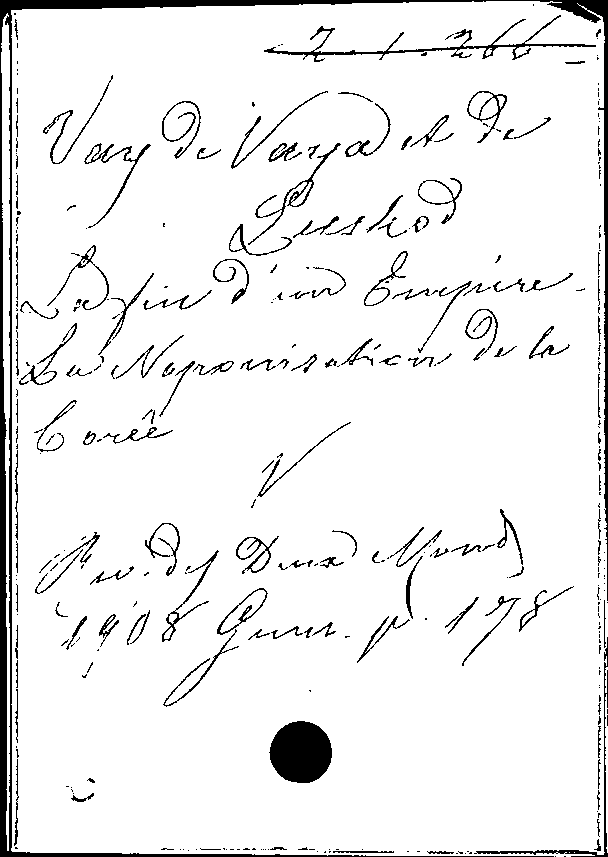 2. 1. 266
Vay de Vaya et de
Luskod
La fin d'un Empire -
La Naponisation de la
Corée
V
Rev. des Deux Mond
1908 p. 178